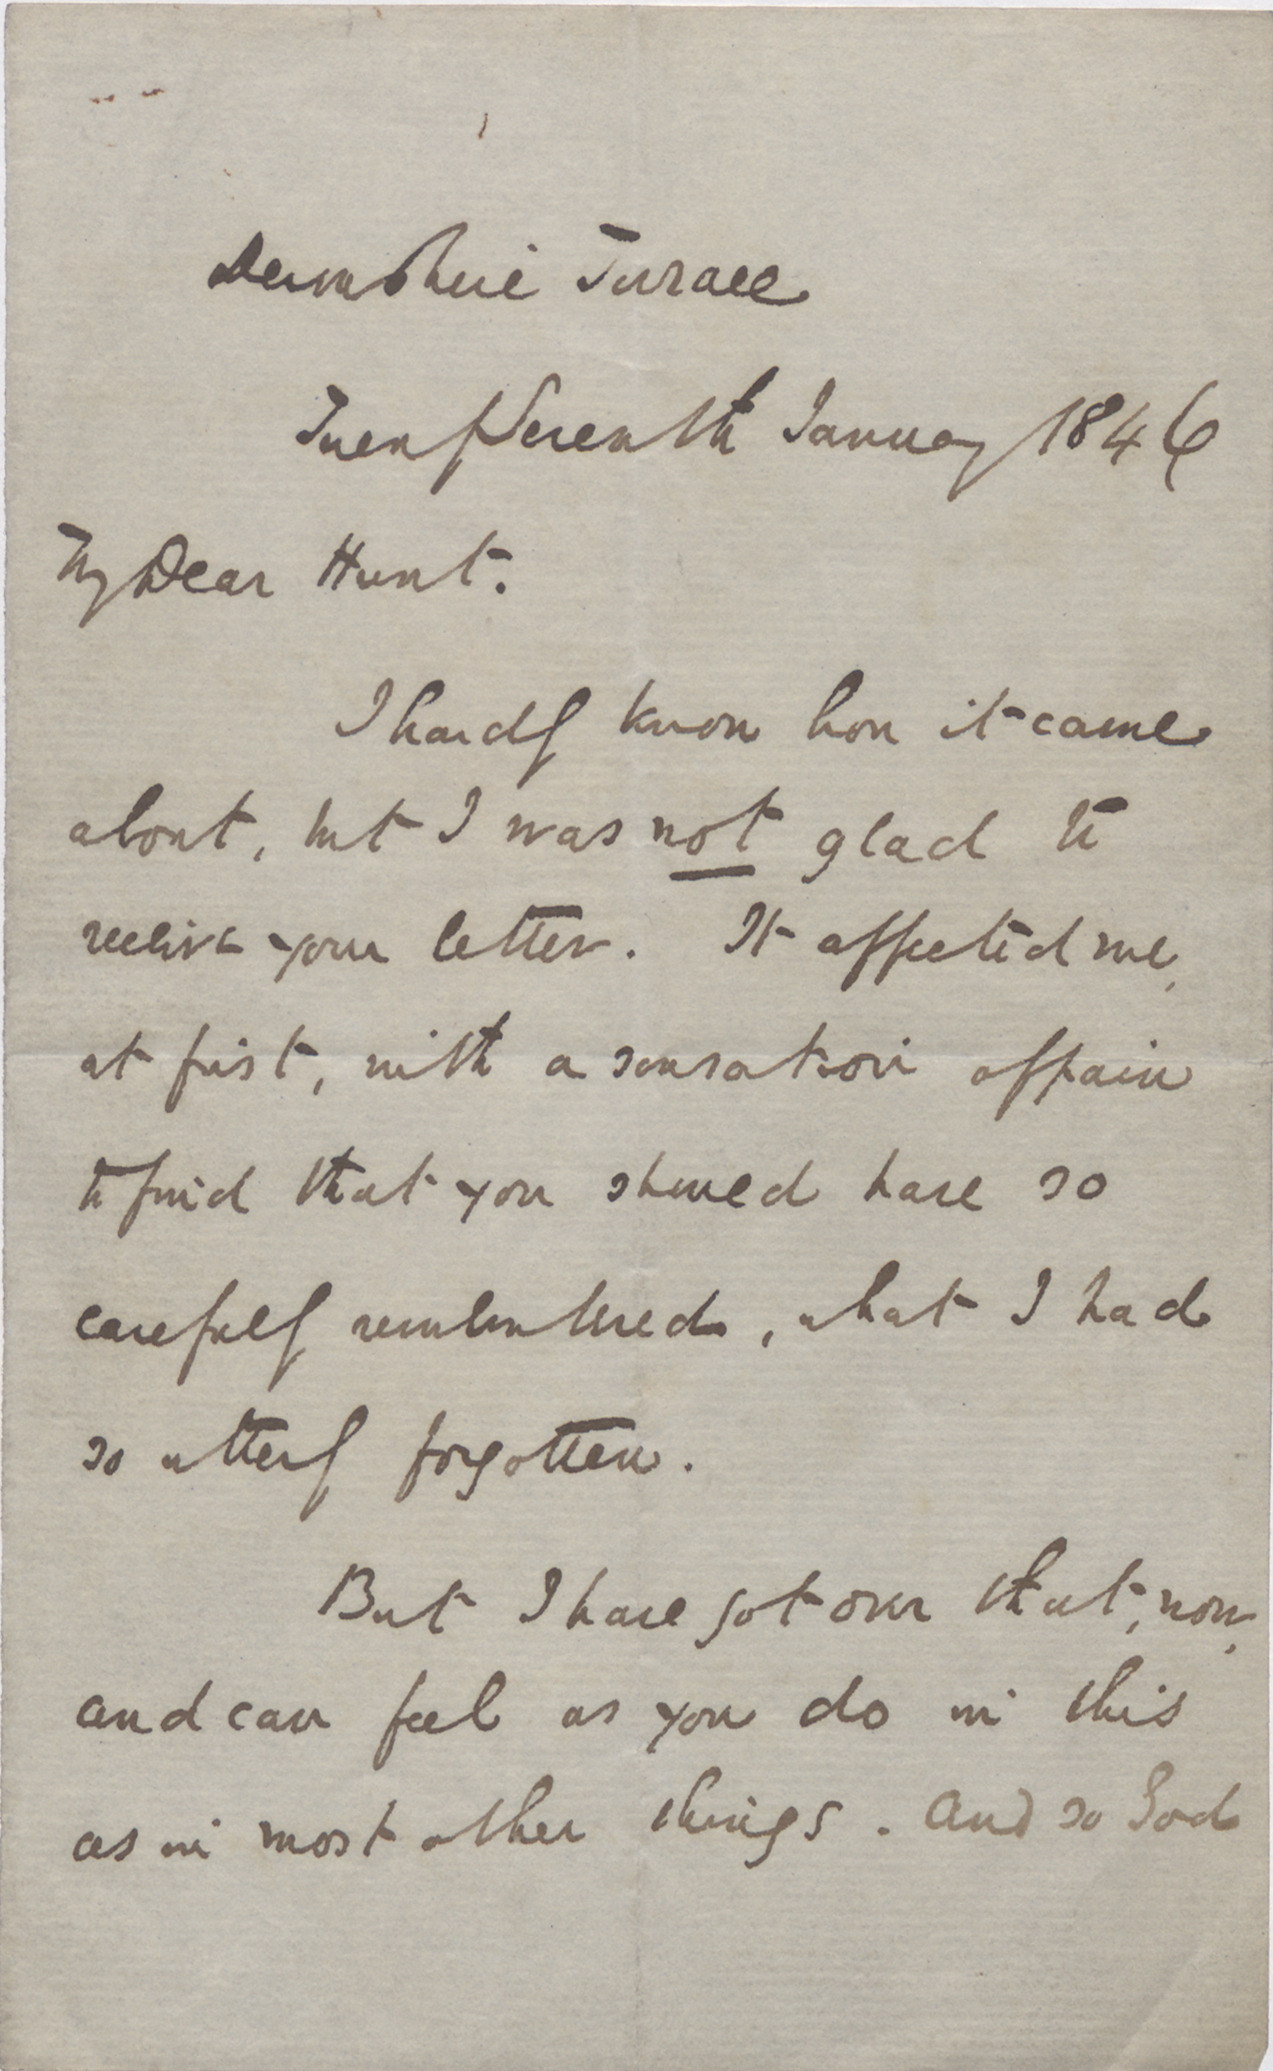 Devonshire Terrace
Twenty Seventh January 1846
My Dear Hunt.
I hardly know how it came
about, but I was not glad to
receive your letter. It affected me,
at first, with a sensation of pain
to find that you should have so
carefully remembered, what I had
so utterly forgotten.
But I have got over that, now,
and can feel as you do in this
as in most other things. And so God